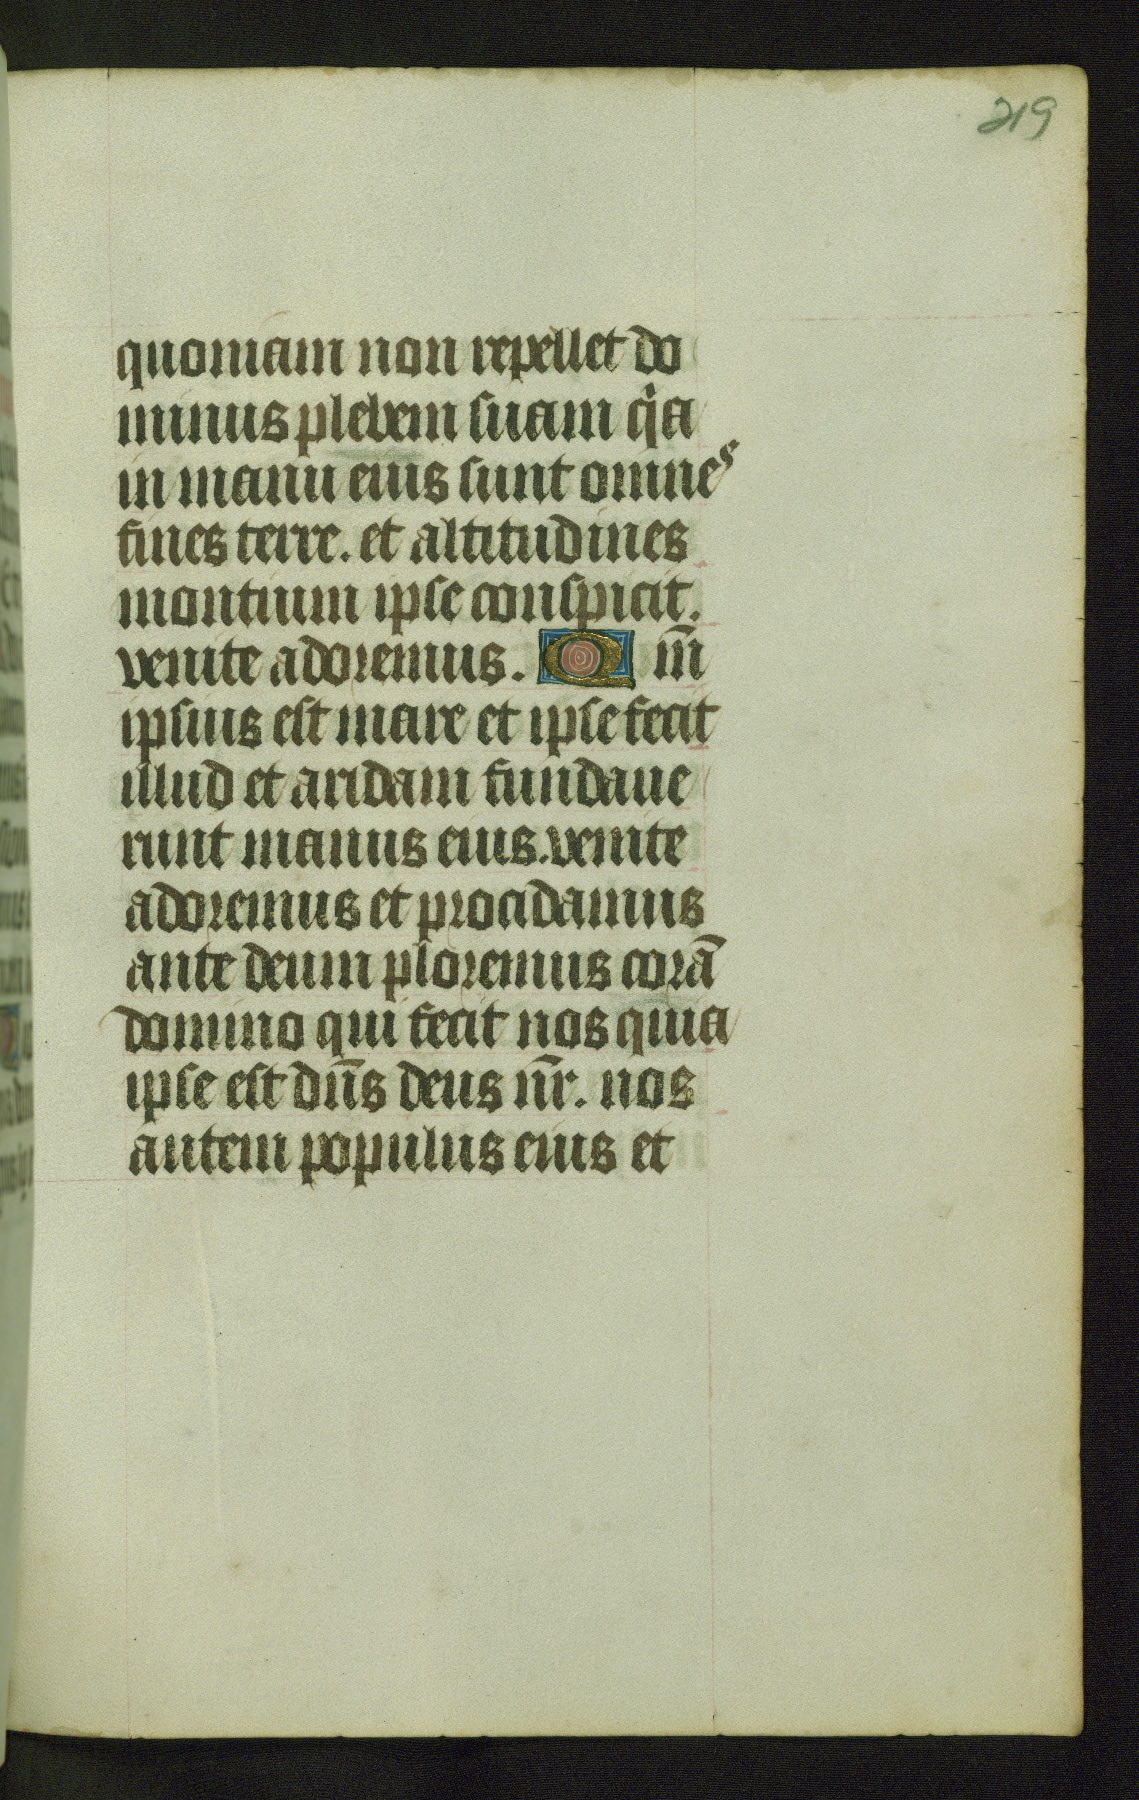 219
quoniam non repellet do
minus plebem suam qͥa
in manu eius sunt omnes
fines terre. et altitudines
montium ipse conspicit.
venite adoremus. Qm̄
ipsius est mare et ipse fecit
illud et aridam fundaue
runt manus eius. venite
adoremus et procidamus
ante deum ploremus corā
domino qui fecit nos quia
ipse est dn̄s deus nr̄. nos
autem populus eius et